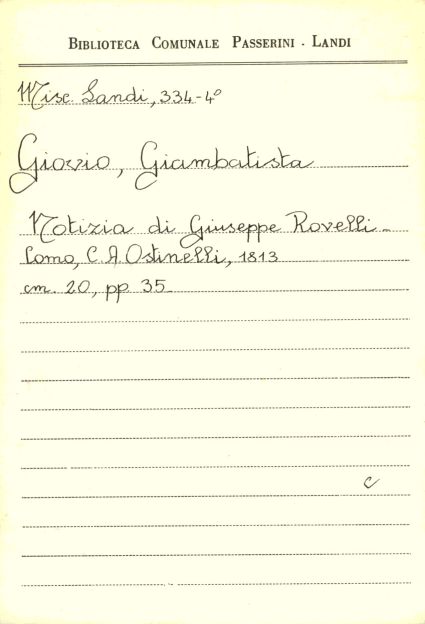 BIBLIOTECA COMUNALE PASSERINI - LANDI
Misc. Landi, 334-4°
Giovio, Giambatista
Notizia di Giuseppe Rovelli -
Como, C. A. Ostinelli, 1813
cm. 20, pp. 35 -
c